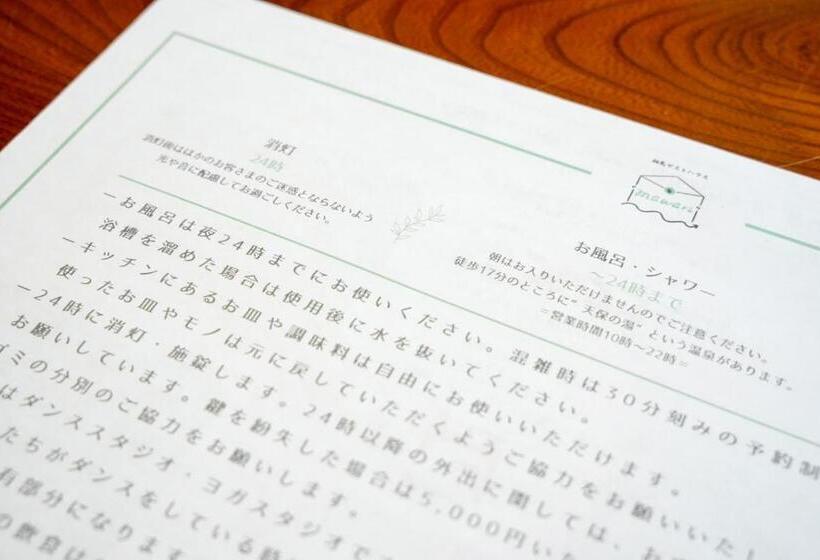 消灯
24時
消灯後はほかのお客さまのご迷惑とならないよう
光や音に配慮してお過ごしください。
mawari
お風呂・シャワー
〜24時まで
朝はお入りいただけませんのでご注意ください。
徒歩17分のところに“天保の湯”という温泉があります。
=営業時間10時〜22時=
ーお風呂は夜24時までにお使いください。混雑時は30分刻みの予約制
浴槽を溜めた場合は使用後に水を抜いてください。
ーキッチンにあるお皿や調味料は自由にお使いいただけます。
使ったお皿やモノは元に戻していただくようご協力をお願いいた
ー24時に消灯・施錠します。24時以降の外出に関しては、
お願いしています。鍵を紛失した場合は5,000円い
ゴミの分別のご協力をお願いします。
はダンススタジオ・ヨガスタジオで
たちがダンスをしている時
有部分になります
の飲食は